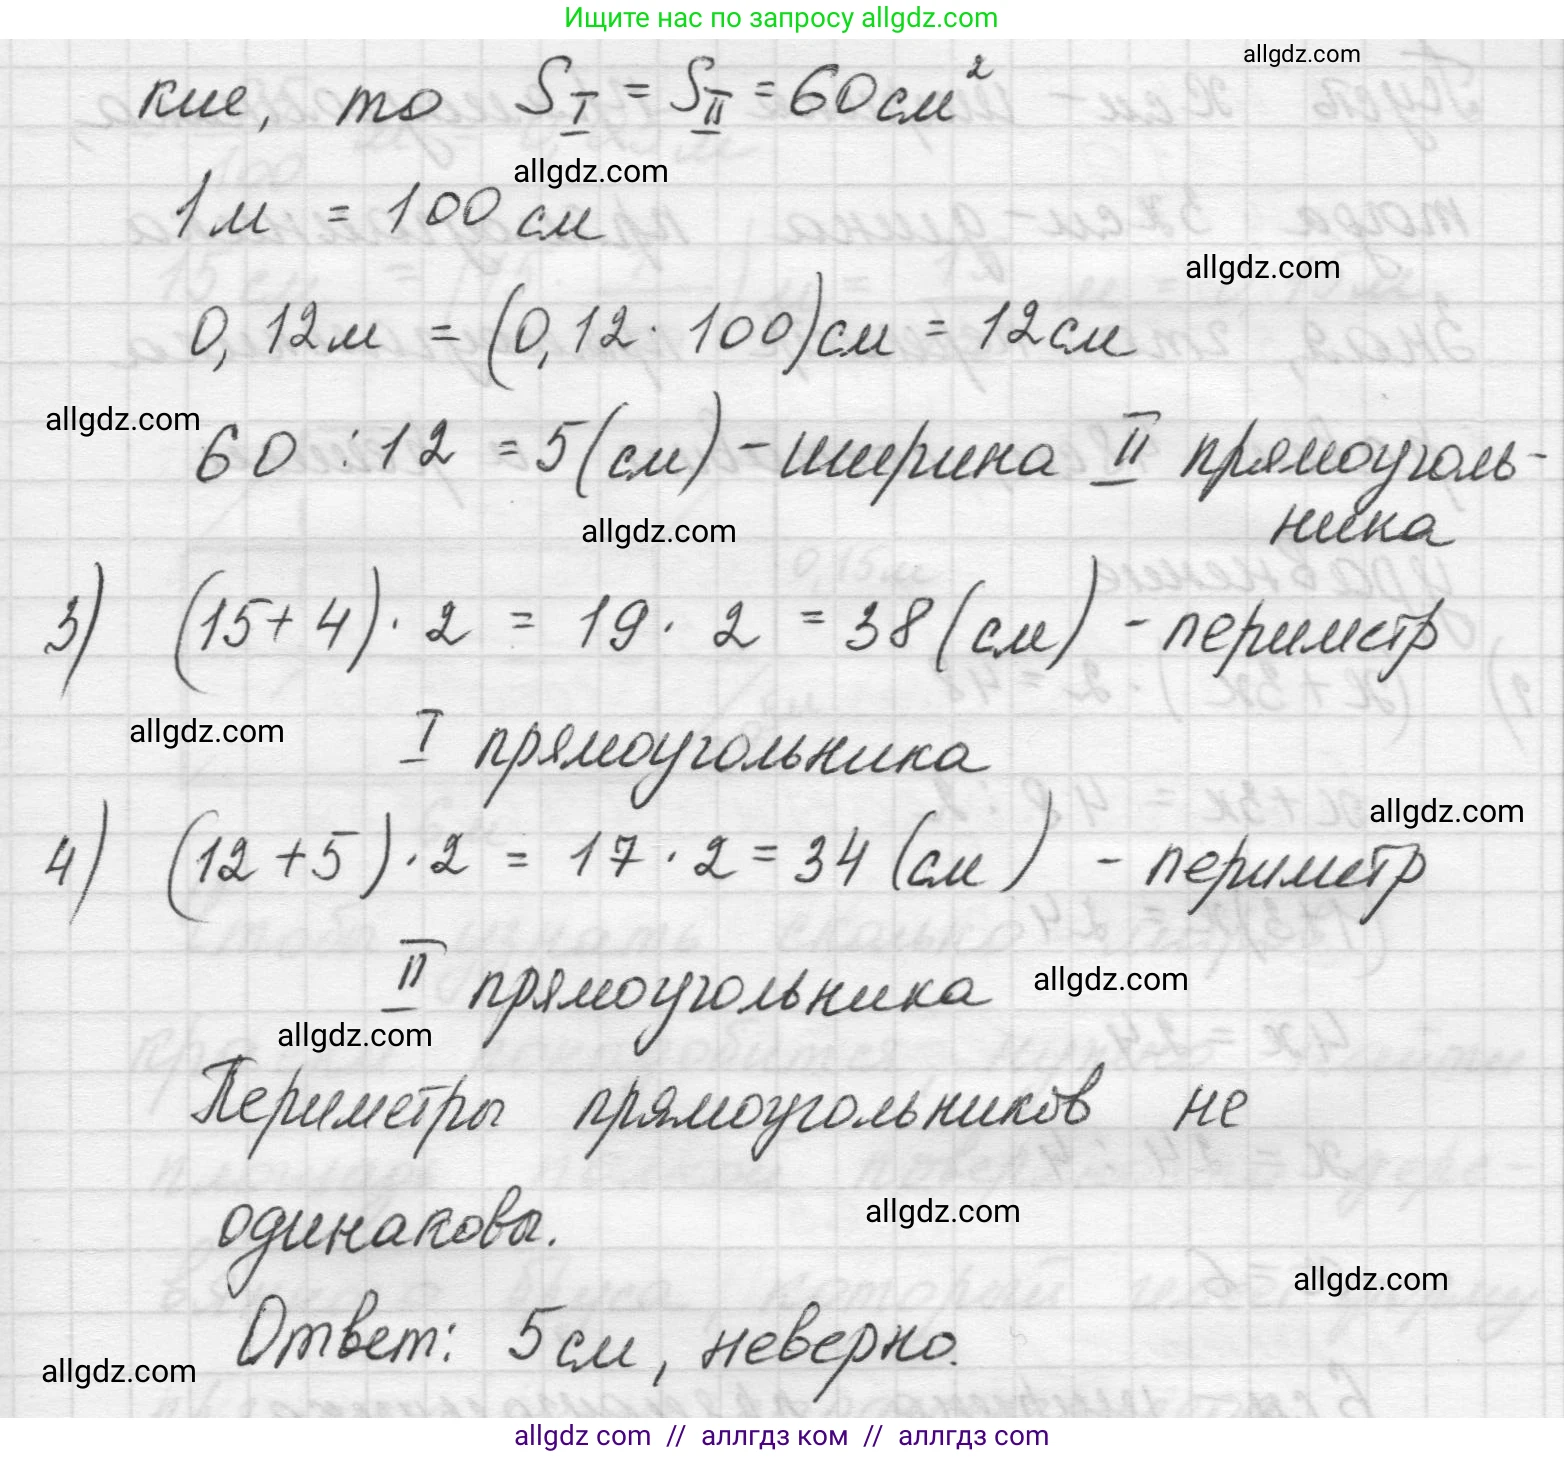 Ищите нас по запросу allgdz.com
allgdz.com
кие, то S_I = S_II = 60 см²
allgdz.com
1 м = 100 см
allgdz.com
0,12 м = (0,12 · 100) см = 12 см
allgdz.com
60 : 12 = 5 (см) - ширина II прямоуголь-
ника
allgdz.com
3) (15 + 4) · 2 = 19 · 2 = 38 (см) - периметр
allgdz.com
I прямоугольника
allgdz.com
4) (12 + 5) · 2 = 17 · 2 = 34 (см) - периметр
II прямоугольника
allgdz.com
allgdz.com
Периметры прямоугольников не
одинаковы.
allgdz.com
allgdz.com
Ответ: 5 см, неверно.
allgdz.com
allgdz com // аллгдз ком // аллгдз com